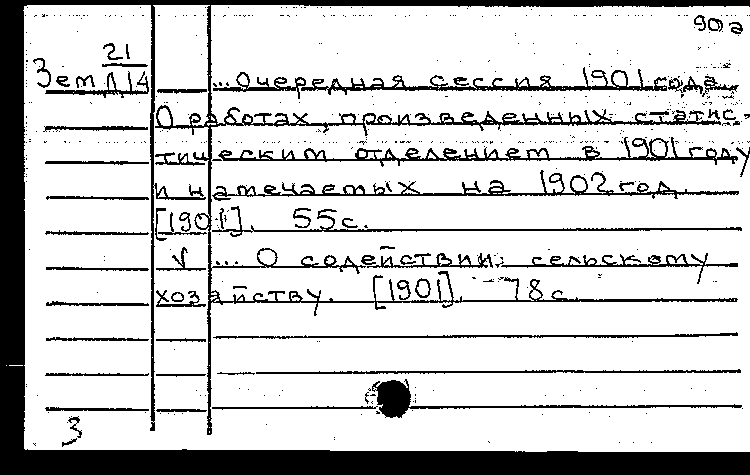 90а
21
Зем Л14 ...Очередная сессия 1901 года.
О работах, произведенных статис-
тическим отделением в 1901 году
и намечаемых на 1902 год.
[1901]. 55с.
V ... О содействии сельскому
хозяйству. [1901]. 78с.
3